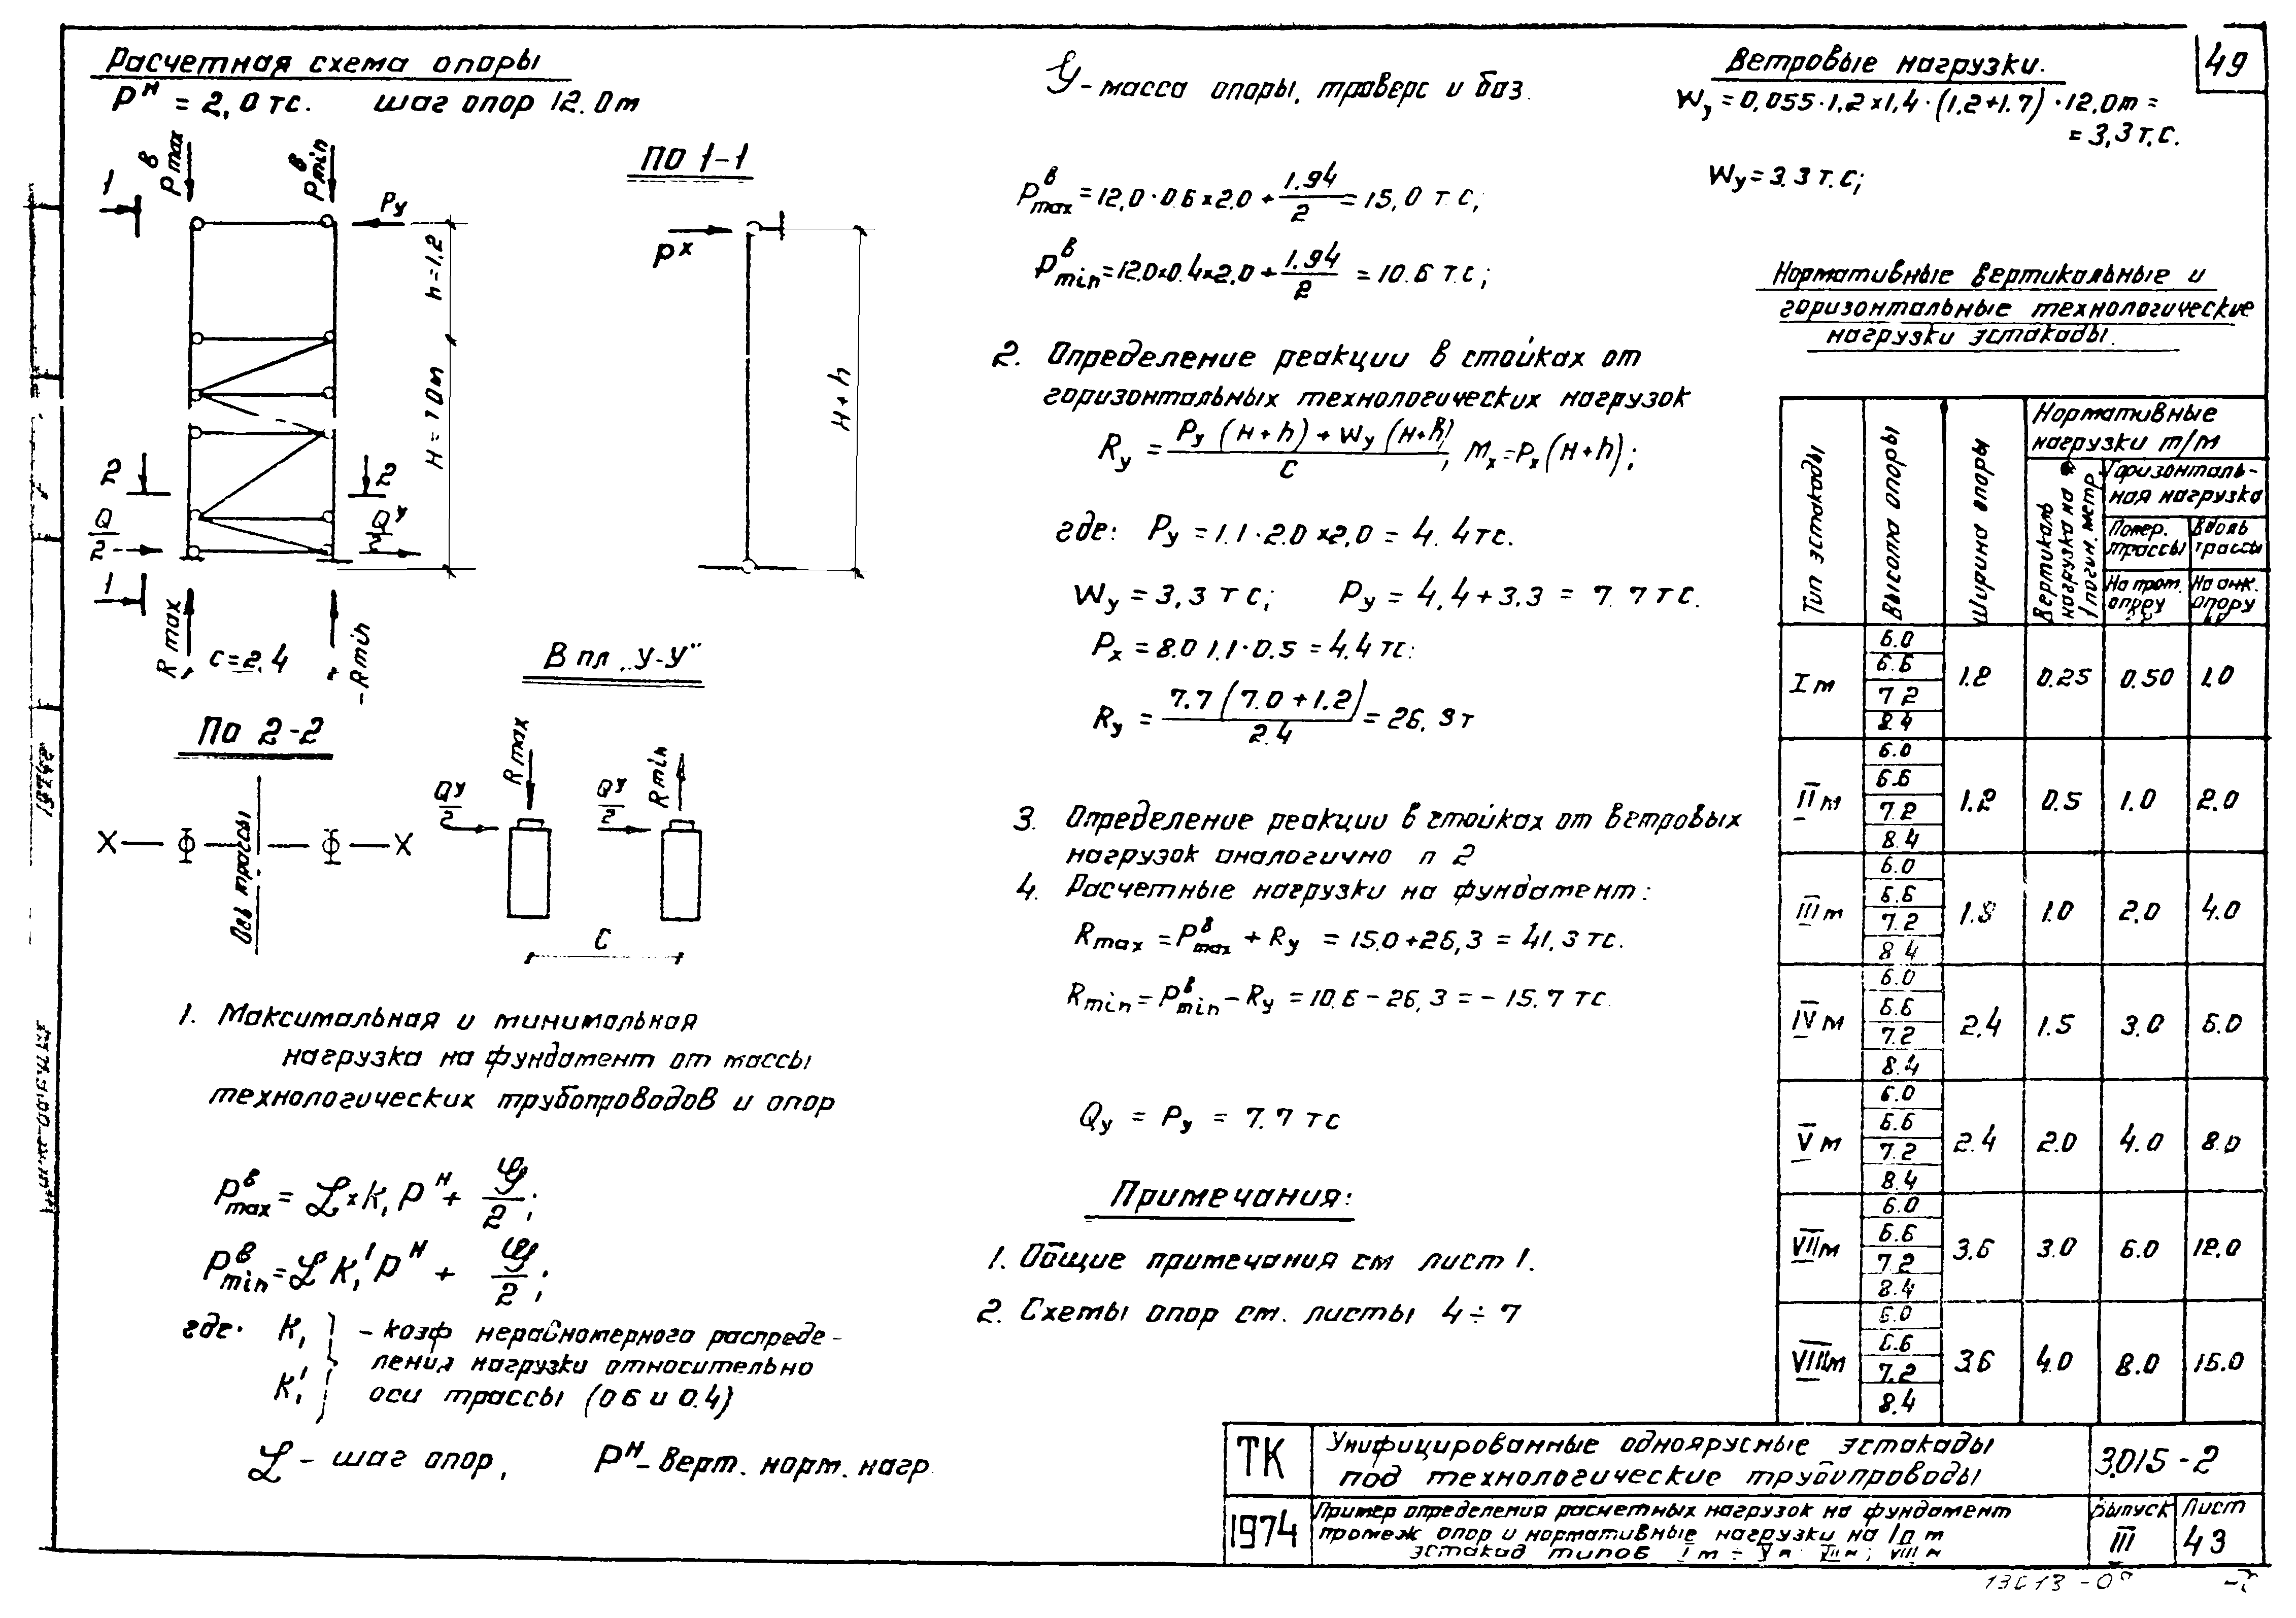 49
Расчетная схема опоры
Pᴴ = 2,0 тс. шаг опор 12.0 м
1
Pᵇmax
Pᵇmin
Pу
h=1.2
H=7.0м
2
2
Q/2
Qʸ/2
1
Rmax
c=2.4
-Rmin
По 1-1
Pˣ
H+h
По 2-2
X
X
Ось трассы
В пл. „У-У"
Qʸ/2
Rmax
Qʸ/2
Rmin
C
1. Максимальная и минимальная
нагрузка на фундамент от массы
технологических трубопроводов и опор
Pᵇmax = ℒ×K₁ Pᴴ + 𝒴/2;
Pᵇmin = ℒ K₁' Pᴴ + 𝒴/2;
где. K₁ } - коэф неравномерного распреде-
ления нагрузки относительно
K₁' } оси трассы (0.6 и 0.4)
ℒ - шаг опор, Pᴴ - Верт. норм. нагр.
𝒴 - масса опоры, траверс и баз.
Pᵇmax = 12,0·0.6×2.0 + 1.94/2 = 15,0 тс;
Pᵇmin = 12.0×0.4×2.0 + 1.94/2 = 10.6 тс;
2. Определение реакции в стойках от
горизонтальных технологических нагрузок
Rу = Pу (H+h) + Wу (H+h) / c ; Mx = Px (H+h);
где: Pу = 1.1·2.0×2,0 = 4.4 тс.
Wу = 3,3 тс; Pу = 4,4+3.3 = 7.7 тс.
Px = 8.0 1.1·0.5 = 4.4 тс.
Rу = 7.7 (7.0+1.2) / 2.4 = 26,3 т
3. Определение реакции в стойках от ветровых
нагрузок аналогично п 2
4. Расчетные нагрузки на фундамент:
Rmax = Pᵇmax + Rу = 15.0+26,3 = 41,3 тс.
Rmin = Pᵇmin - Rу = 10.6 - 26,3 = - 15.7 тс.
Qу = Pу = 7.7 тс
Примечания:
1. Общие примечания см лист 1.
2. Схемы опор см. листы 4÷7
Ветровые нагрузки.
Wу = 0,055·1.2×1,4·(1.2+1.7)·12.0м =
= 3,3 т.с.
Wу = 3.3 т.с;
Нормативные вертикальные и
горизонтальные технологические
нагрузки эстакады.
Тип эстакады
Высота опоры
Ширина опоры
Нормативные
нагрузки т/м
Вертикаль
нагрузка на
1 погон. метр
Горизонталь-
ная нагрузка
Попер. трассы
Вдоль трассы
На пром. опору
На анк. опору
Iт 6.0 6.6 7.2 8.4 1.2 0.25 0.50 1.0
IIт 6.0 6.6 7.2 8.4 1.2 0.5 1.0 2.0
IIIт 6.0 6.6 7.2 8.4 1.8 1.0 2.0 4.0
IVт 6.0 6.6 7.2 8.4 2.4 1.5 3.0 6.0
Vт 6.0 6.6 7.2 8.4 2.4 2.0 4.0 8.0
VIIт 6.0 6.6 7.2 8.4 3.6 3.0 6.0 12.0
VIIIт 6.0 6.6 7.2 8.4 3.6 4.0 8.0 16.0
ТК
1974
Унифицированные одноярусные эстакады
под технологические трубопроводы
3.015-2
Пример определения расчетных нагрузок на фундамент
промеж опор и нормативные нагрузки на 1п м
эстакад типов Iт ÷ Vт VIIт; VIIIт
Выпуск
III
Лист
43